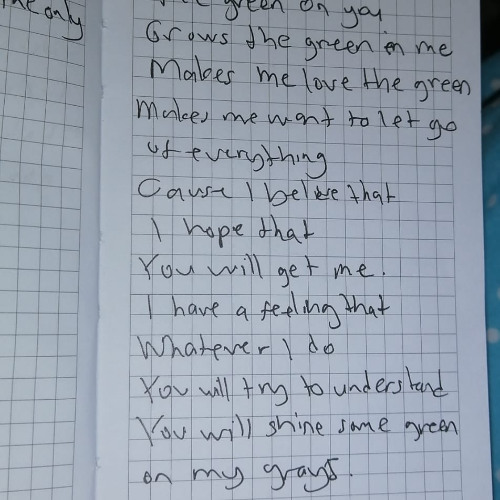 the only
green on you
Grows the green in me
Makes me love the green
Makes me want to let go
of everything
Cause I believe that
I hope that
You will get me.
I have a feeling that
Whatever I do
You will try to understand
You will shine some green
on my grays.